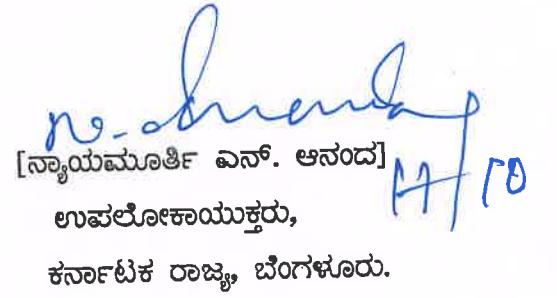 N. Ananda
[ನ್ಯಾಯಮೂರ್ತಿ ಎನ್. ಆನಂದ]
17/10
ಉಪಲೋಕಾಯುಕ್ತರು,
ಕರ್ನಾಟಕ ರಾಜ್ಯ, ಬೆಂಗಳೂರು.